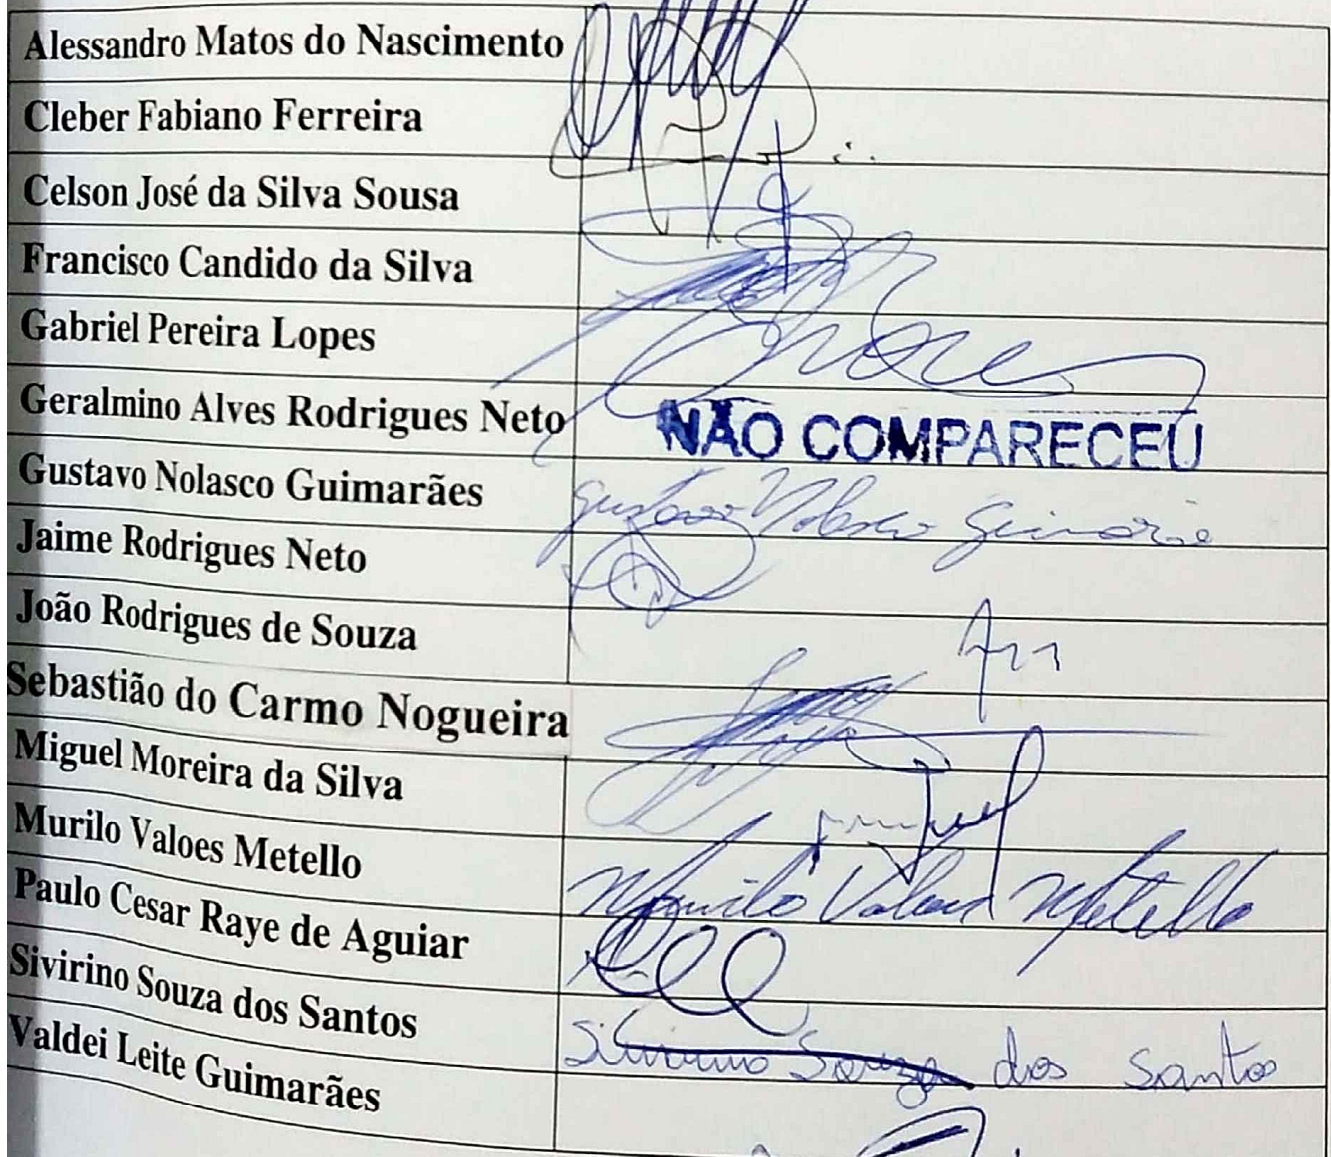 Alessandro Matos do Nascimento
Cleber Fabiano Ferreira
Celson José da Silva Sousa
Francisco Candido da Silva
Gabriel Pereira Lopes
Geralmino Alves Rodrigues Neto NÃO COMPARECEU
Gustavo Nolasco Guimarães Gustavo Nolasco Guimarães
Jaime Rodrigues Neto
João Rodrigues de Souza
Sebastião do Carmo Nogueira
Miguel Moreira da Silva
Murilo Valoes Metello Murilo Valoes Metello
Paulo Cesar Raye de Aguiar
Sivirino Souza dos Santos Sivirino Souza dos Santos
Valdei Leite Guimarães